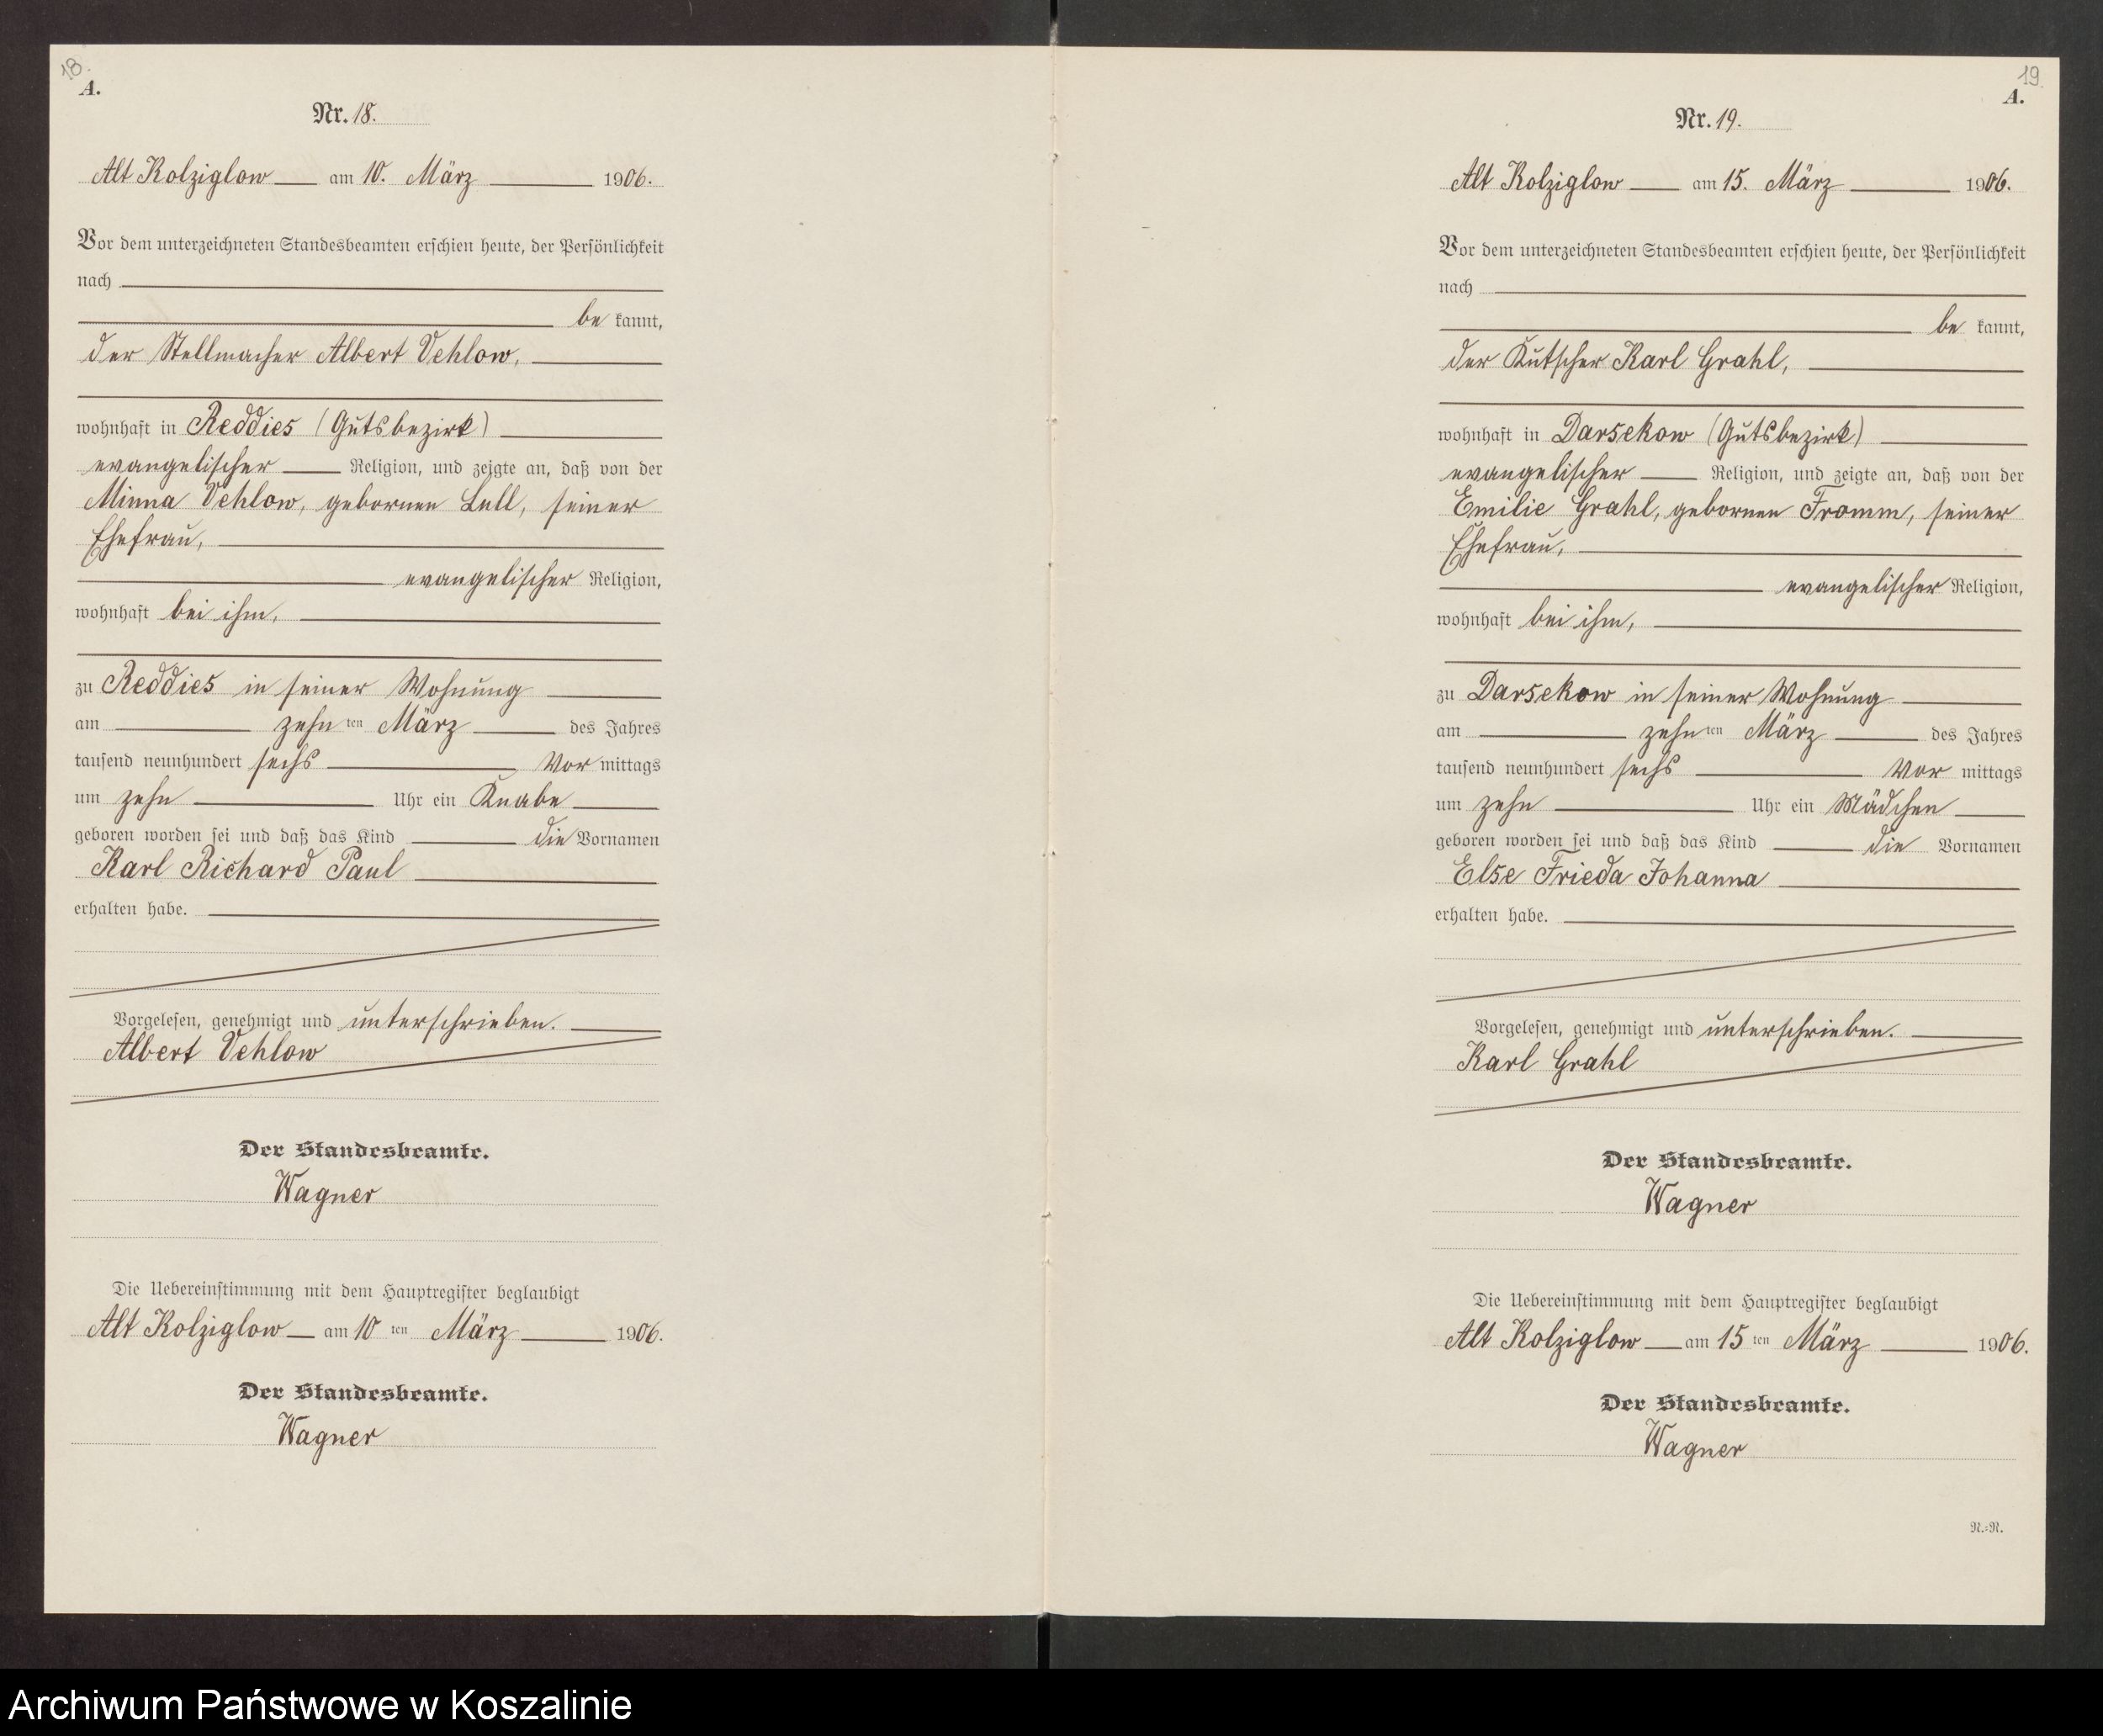 18.
A.
Nr. 18.
Alt Kolziglow am 10. März 1906.
Vor dem unterzeichneten Standesbeamten erschien heute, der Persönlichkeit
nach
be kannt,
der Stellmacher Albert Vehlow,
wohnhaft in Reddies (Gutsbezirk)
evangelischer Religion, und zeigte an, daß von der
Minna Vehlow, gebornen Lull, seiner
Ehefrau,
evangelischer Religion,
wohnhaft bei ihm,
zu Reddies in seiner Wohnung
am zehn ten März des Jahres
tausend neunhundert sechs Vor mittags
um zehn Uhr ein Knabe
geboren worden sei und daß das Kind die Vornamen
Karl Richard Paul
erhalten habe.
Vorgelesen, genehmigt und unterschrieben.
Albert Vehlow
Der Standesbeamte.
Wagner
Die Uebereinstimmung mit dem Hauptregister beglaubigt
Alt Kolziglow am 10 ten März 1906.
Der Standesbeamte.
Wagner
19
A.
Nr. 19.
Alt Kolziglow am 15. März 1906.
Vor dem unterzeichneten Standesbeamten erschien heute, der Persönlichkeit
nach
be kannt,
der Kutscher Karl Grahl,
wohnhaft in Darsekow (Gutsbezirk)
evangelischer Religion, und zeigte an, daß von der
Emilie Grahl, gebornen Fromm, seiner
Ehefrau,
evangelischer Religion,
wohnhaft bei ihm,
zu Darsekow in seiner Wohnung
am zehn ten März des Jahres
tausend neunhundert sechs Vor mittags
um zehn Uhr ein Mädchen
geboren worden sei und daß das Kind die Vornamen
Else Frieda Johanna
erhalten habe.
Vorgelesen, genehmigt und unterschrieben.
Karl Grahl
Der Standesbeamte.
Wagner
Die Uebereinstimmung mit dem Hauptregister beglaubigt
Alt Kolziglow am 15 ten März 1906.
Der Standesbeamte.
Wagner
N.=N.
Archiwum Państwowe w Koszalinie